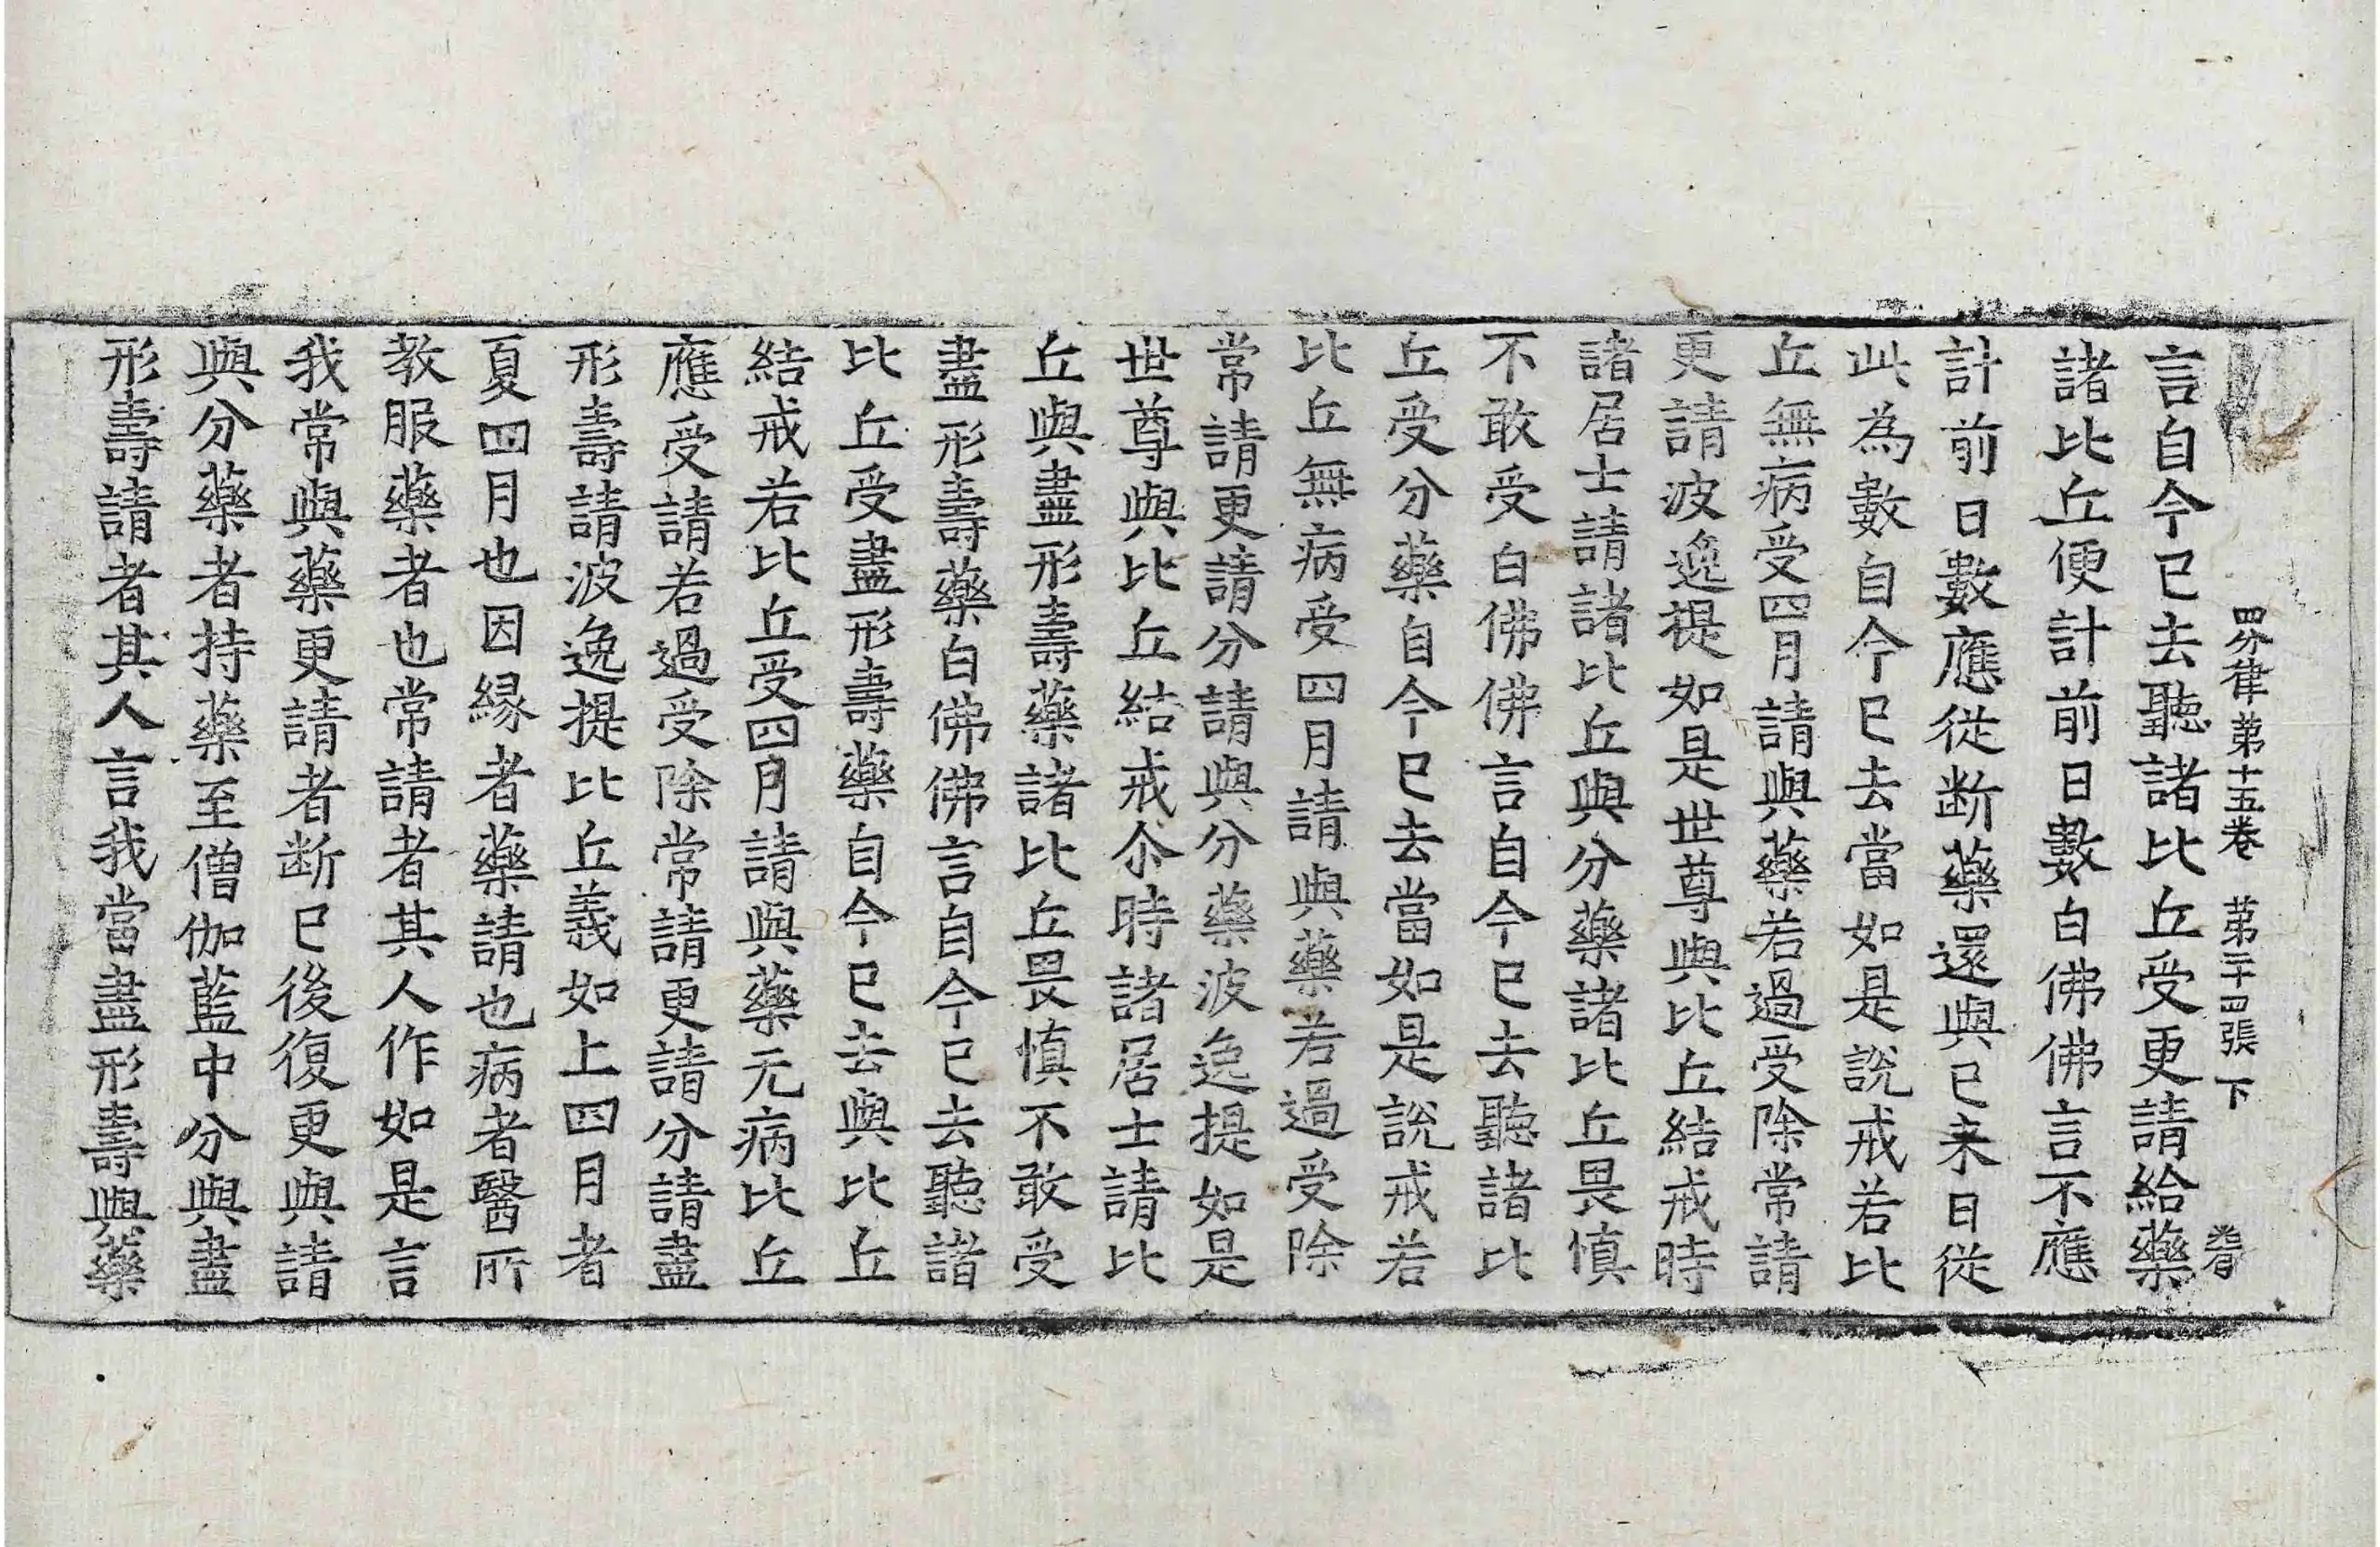 四分律第十五卷　第二十四張　下
言自今已去聽諸比丘受更請給藥
諸比丘便計前日數白佛佛言不應
計前日數應從断藥還與已来日從
此為數自今已去當如是說戒若比
丘無病受四月請與藥若過受除常請
更請波逸提如是世尊與比丘結戒時
諸居士請諸比丘與分藥諸比丘畏慎
不敢受白佛佛言自今已去聽諸比
丘受分藥自今已去當如是說戒若
比丘無病受四月請與藥若過受除
常請更請分請與分藥波逸提如是
世尊與比丘結戒尒時諸居士請比
丘與盡形壽藥諸比丘畏慎不敢受
盡形壽藥白佛佛言自今已去聽諸
比丘受盡形壽藥自今已去與比丘
結戒若比丘受四月請與藥无病比丘
應受請若過受除常請更請分請盡
形壽請波逸提比丘義如上四月者
夏四月也因縁者藥請也病者醫所
教服藥者也常請者其人作如是言
我常與藥更請者断已後復更與請
與分藥者持藥至僧伽藍中分與盡
形壽請者其人言我當盡形壽與藥